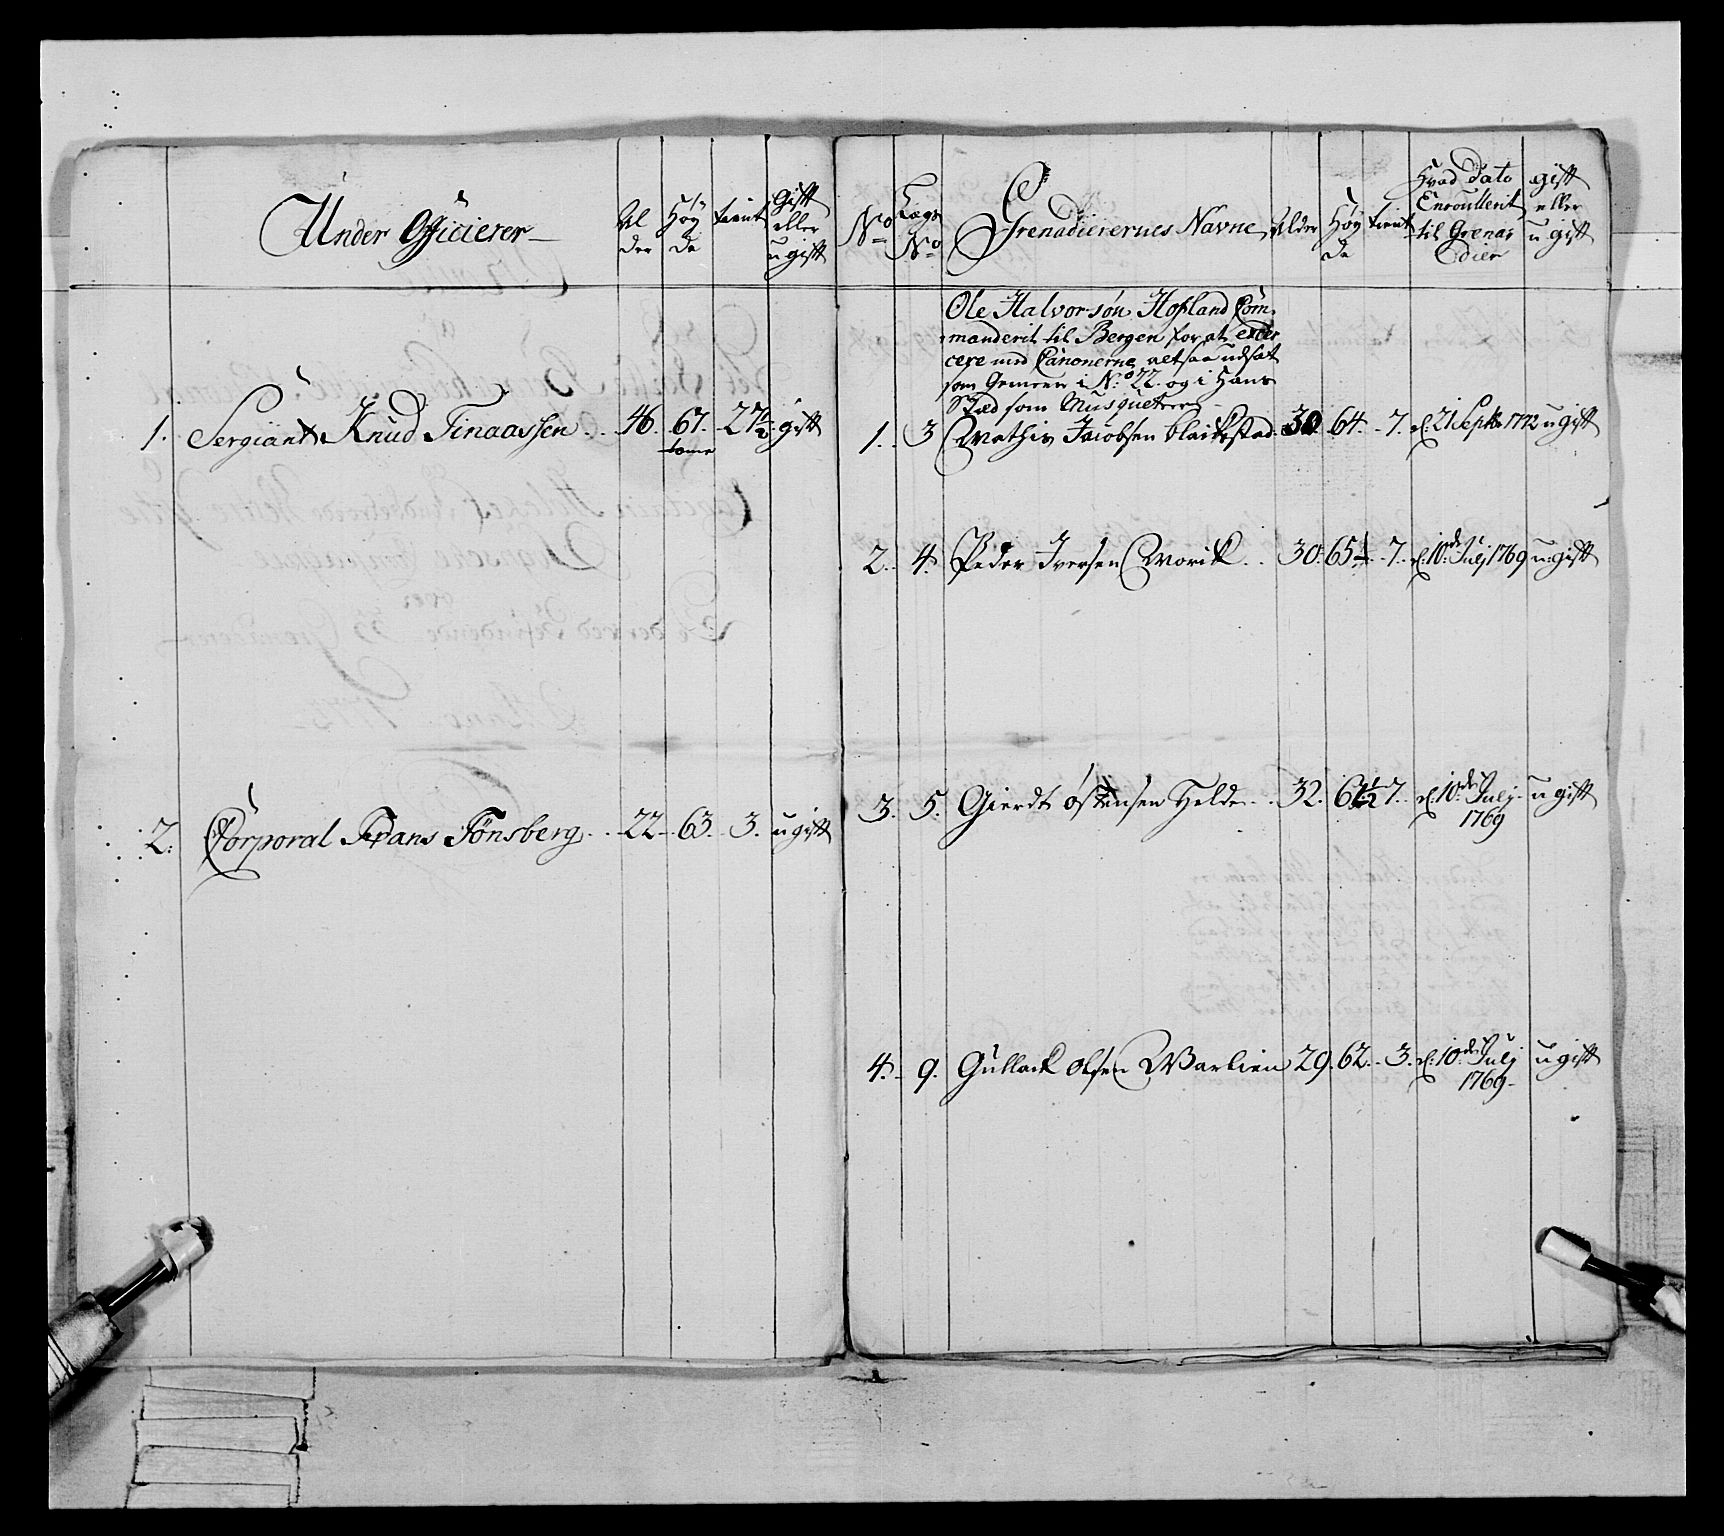 Under Officierer
Al
der
Höy
de
tient
gift
eller
ugift
1. Sergiant Knud Finaassen 46. 67. 27½ gift
tome
2. Corporal Frans Tönsberg 22 63 3. ugift
No
Lægs
No
Grenadierernes Navne
Alder
Höy
de
tient
Hvad Dato
Enroullert
til Grena-
dier
gift
eller
ugift
Ole Halvorsön Hofland Com-
manderit til Bergen for at exer-
cere med Canonerne altsaa udsat
som Gemeen i No 22. og i Hans
Stæd som Musqueteer
1. 3 Mathis Jacobsen Blaikestad 30 64. 7. d. 21 Septbr 1772 ugift
2. 4. Peder Iversen Worik 30. 65½ 7. d. 10de Julj 1769 ugift
3. 5. Gierdt Østensen Helde 32. 61½ 7. d. 10de Julj
1769 ugift
4. 9. Gullack Olsen Warlien 29. 62. 3. d. 10de Julj
1769 ugift